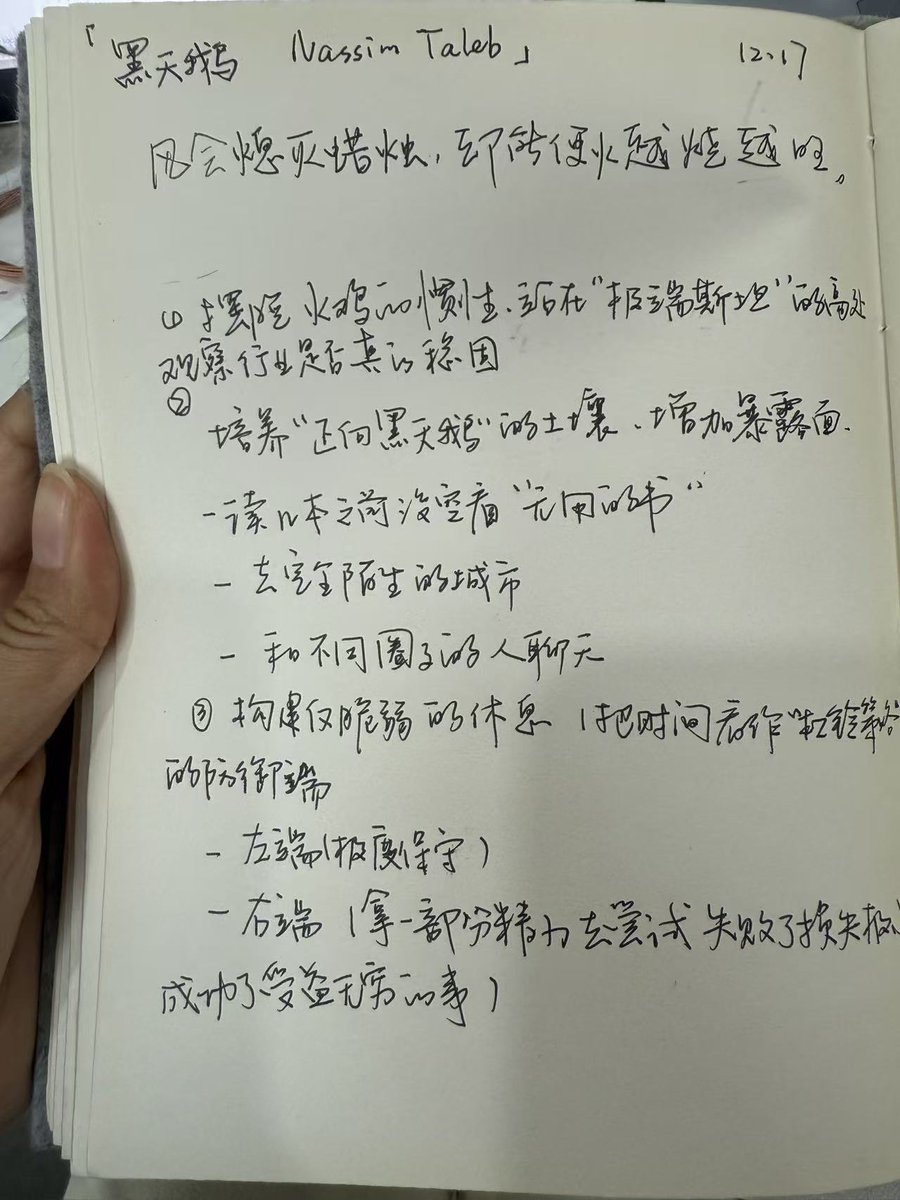 「黑天鹅 Nassim Taleb」 12.17
风会熄灭蜡烛，却能使火越烧越旺。
① 摆脱火鸡的惯性、站在“极端斯坦”的高处
观察行业是否真的稳固
②
培养“正向黑天鹅”的土壤、增加暴露面.
- 读几本之前没空看“无用的书”
- 去完全陌生的城市
- 和不同圈子的人聊天
③ 构建反脆弱的休息（把时间看作“杠铃策略
的防御端
- 左端（极度保守）
- 右端（拿一部分精力去尝试 失败了损失极
成功了受益无穷的事）